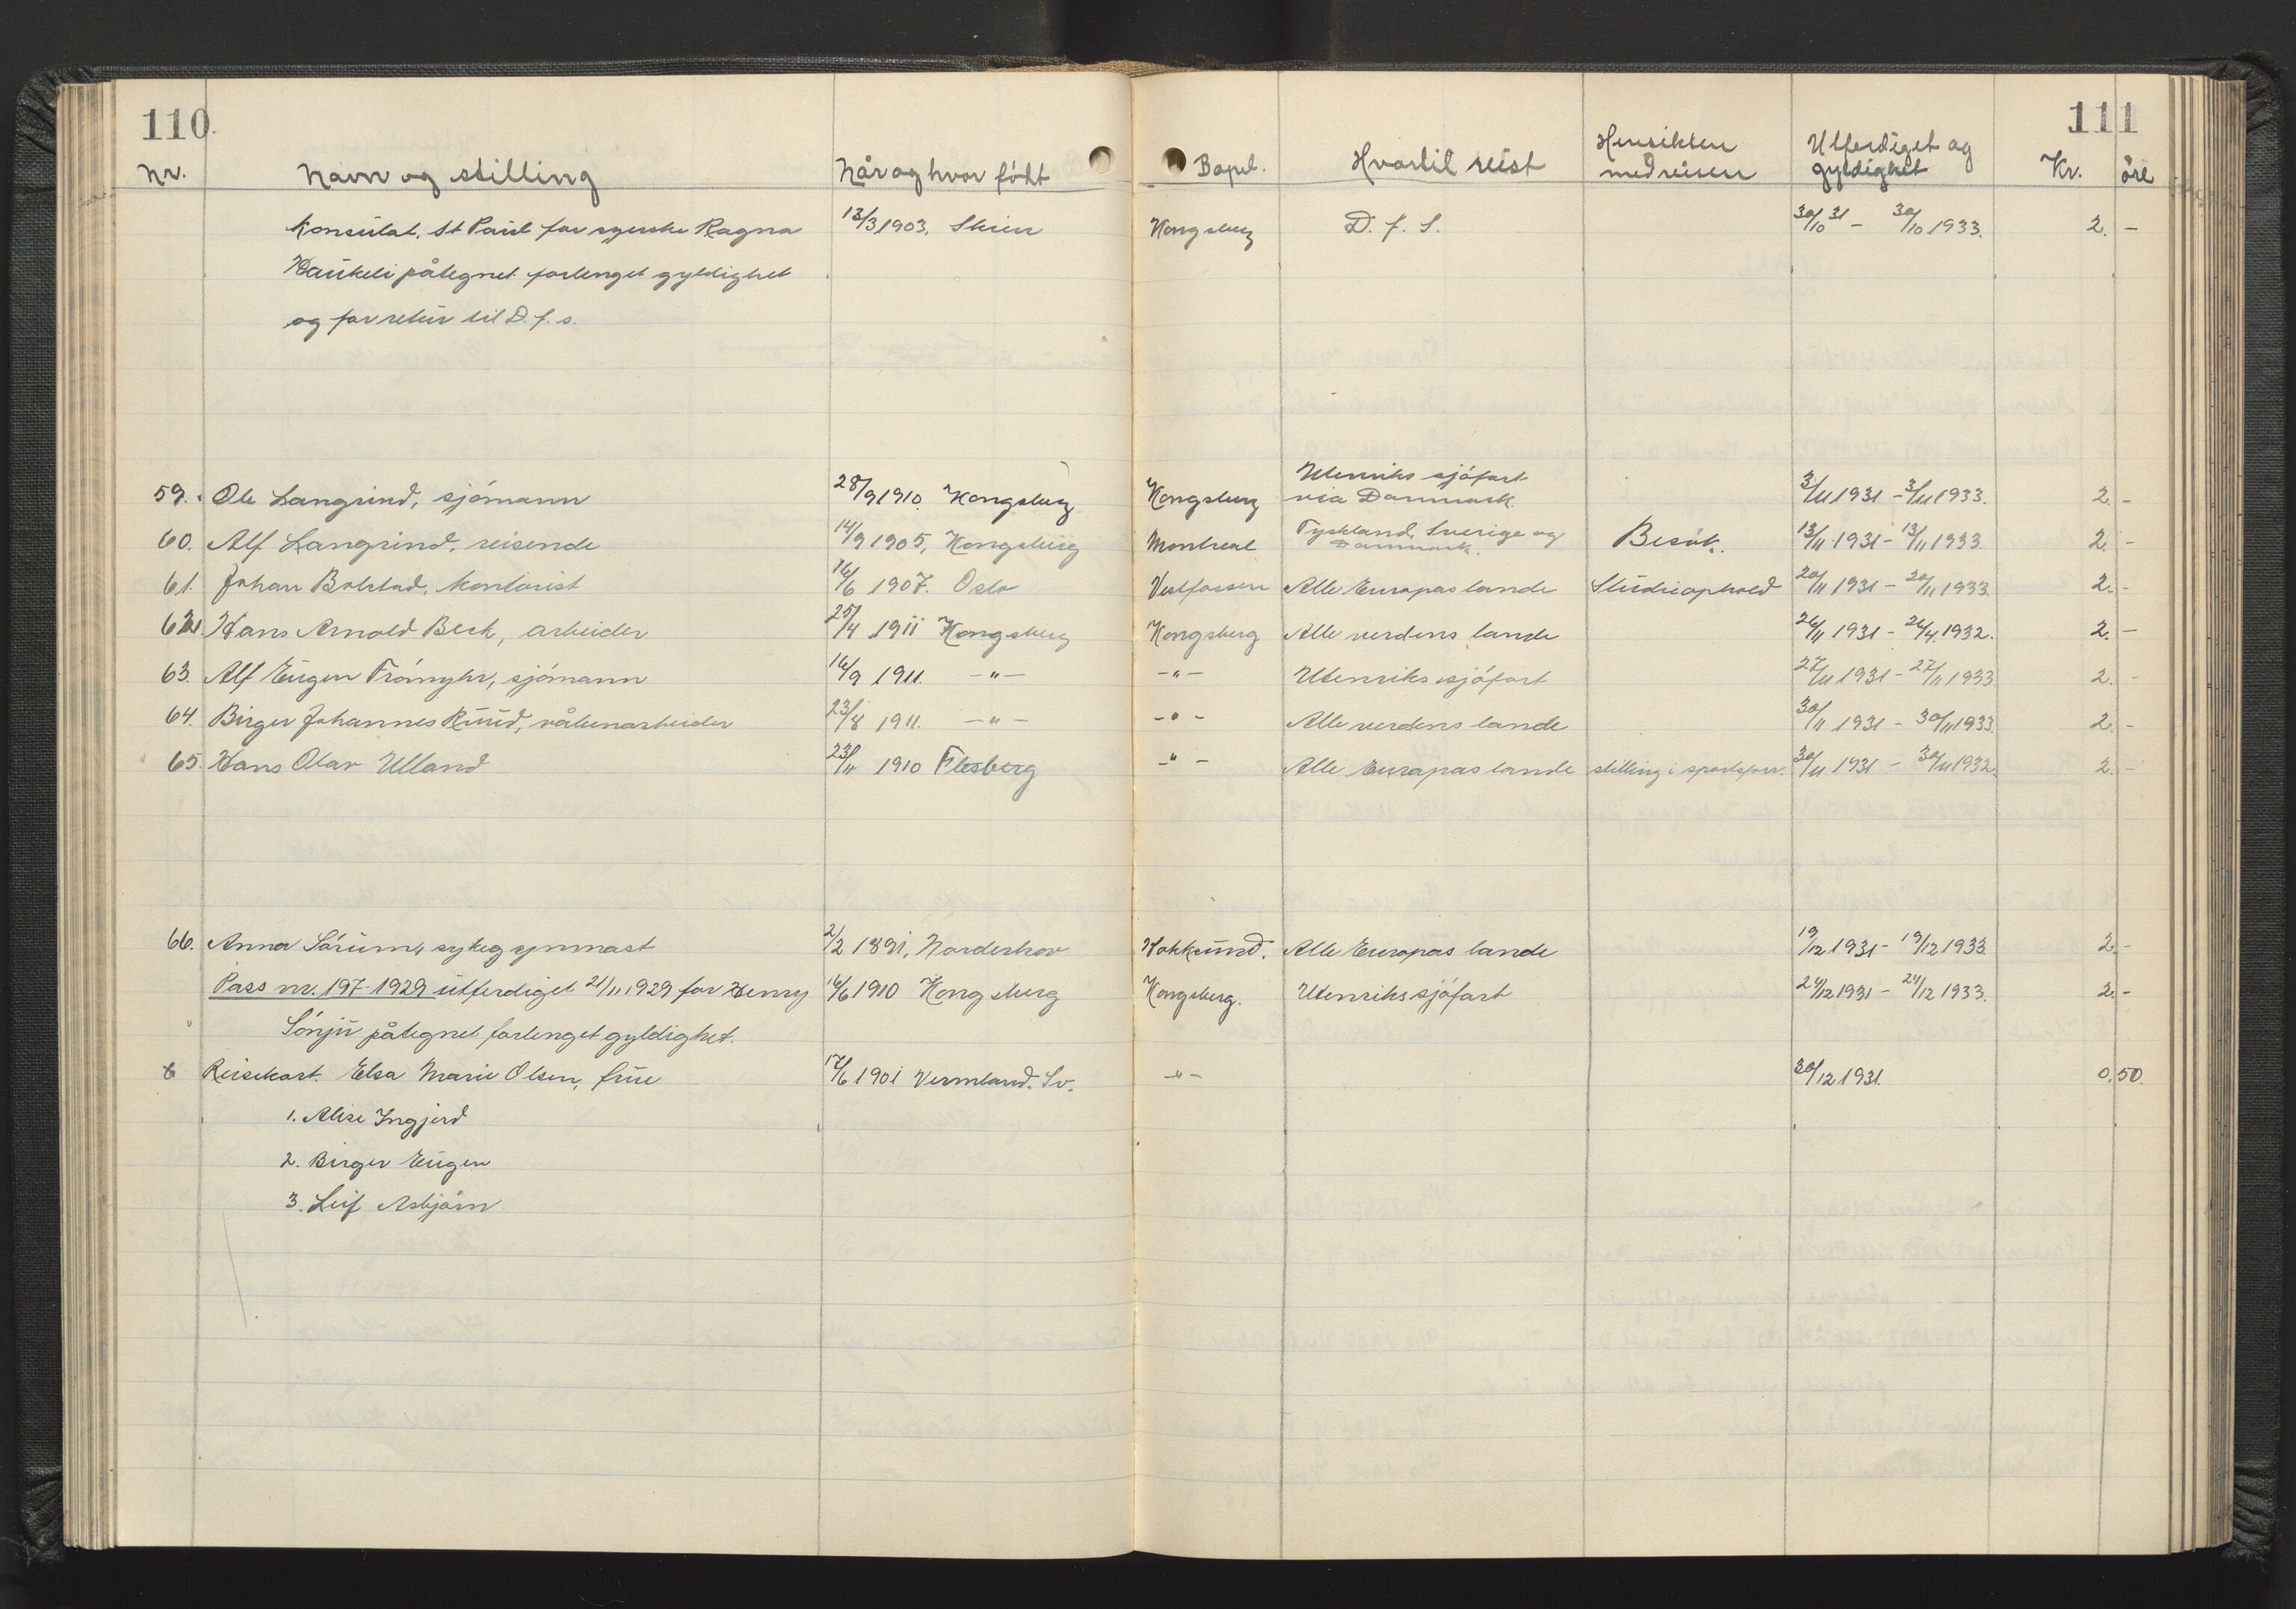 110.
111
Nr. Navn og stilling Når og hvor födt Bopel. Hvortil reist Hensikten med reisen Utferdiget og gyldighet Kr. öre
Konsulat. St Paul for syerske Ragna 13/3 1903. Skien Kongsberg D. f. S. 30/10 31 - 30/10 1933. 2. -
Haukeli påtegnet forlenget gyldighet
og for retur til D. f. s.
59. Ole Langrind, sjömann 28/9 1910. Kongsberg Kongsberg Utenriks sjöfart via Danmark. 3/11 1931 - 3/11 1933. 2. -
60. Alf Langrind, reisende 14/9 1905, Kongsberg Montreal Tyskland, Sverige og Danmark. Besök. 13/11 1931 - 13/11 1933. 2. -
61. Johan Bolstad, kontorist 16/6 1907. Oslo Vestfossen Alle Europas lande Studieophold 20/11 1931 - 20/11 1933. 2. -
62. Hans Arnold Beck, arbeider 25/4 1911 Kongsberg Kongsberg Alle verdens lande 26/11 1931 - 26/4 1932. 2. -
63. Alf Eugen Frömyhr, sjömann 16/9 1911. -"- -"- Utenriks sjöfart 27/11 1931 - 27/11 1933 2. -
64. Birger Johannes Ruud, våbenarbeider 23/8 1911. -"- -"- Alle verdens lande 30/11 1931 - 30/11 1933. 2. -
65. Hans Olav Ulland 23/11 1910 Flesberg -"- Alle Europas lande stilling i sportsforr. 30/11 1931 - 30/11 1932. 2. -
66. Anna Sörum, sykegymnast 2/2 1891, Norderhov Hokksund. Alle Europas lande 19/12 1931 - 19/12 1933. 2. -
Pass nr. 197-1929 utferdiget 21/11 1929 for Henry 16/6 1910 Kongsberg Kongsberg. Utenriks sjöfart 24/12 1931 - 24/12 1933. 2. -
Sönju påtegnet forlenget gyldighet.
6 Reisekort. Elsa Marie Olsen, frue 17/6 1901 Vermland. Sv. -"- 30/12 1931. 0.50.
1. Alise Ingjerd
2. Birger Eugen
3. Leif Asbjörn